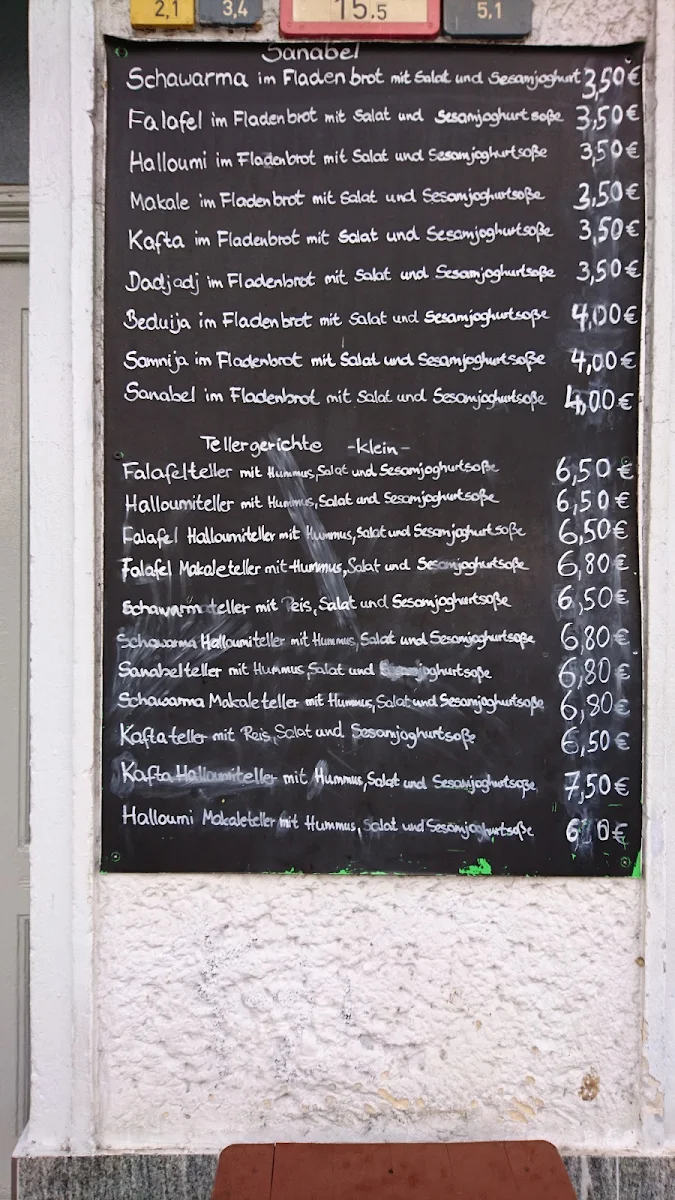 2,1 3,4 15.5 5,1
Sanabel
Schawarma im Fladenbrot mit Salat und Sesamjoghurt 3,50€
Falafel im Fladenbrot mit Salat und Sesamjoghurtsoße 3,50€
Halloumi im Fladenbrot mit Salat und Sesamjoghurtsoße 3,50€
Makale im Fladenbrot mit Salat und Sesamjoghurtsoße 3,50€
Kafta im Fladenbrot mit Salat und Sesamjoghurtsoße 3,50€
Dadjadj im Fladenbrot mit Salat und Sesamjoghurtsoße 3,50€
Beduija im Fladenbrot mit Salat und Sesamjoghurtsoße 4,00€
Samnija im Fladenbrot mit Salat und Sesamjoghurtsoße 4,00€
Sanabel im Fladenbrot mit Salat und Sesamjoghurtsoße 4,00€
Tellergerichte -klein-
Falafelteller mit Hummus, Salat und Sesamjoghurtsoße 6,50€
Halloumiteller mit Hummus, Salat und Sesamjoghurtsoße 6,50€
Falafel Halloumiteller mit Hummus, Salat und Sesamjoghurtsoße 6,50€
Falafel Makaleteller mit Hummus, Salat und Sesamjoghurtsoße 6,80€
Schawarmateller mit Reis, Salat und Sesamjoghurtsoße 6,50€
Schawarma Halloumiteller mit Hummus, Salat und Sesamjoghurtsoße 6,80€
Sanabelteller mit Hummus, Salat und Sesamjoghurtsoße 6,80€
Schawarma Makaleteller mit Hummus, Salat und Sesamjoghurtsoße 6,80€
Kaftateller mit Reis, Salat und Sesamjoghurtsoße 6,50€
Kafta Halloumiteller mit Hummus, Salat und Sesamjoghurtsoße 7,50€
Halloumi Makaleteller mit Hummus, Salat und Sesamjoghurtsoße